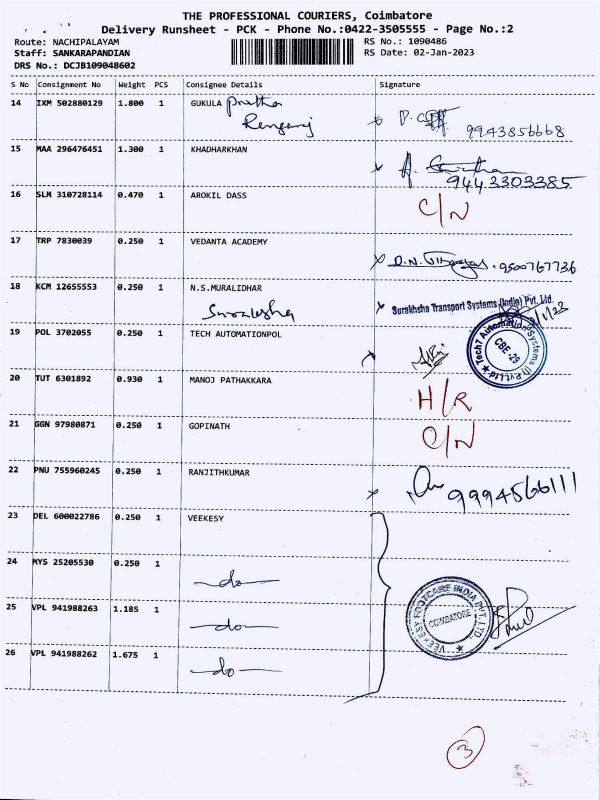 THE PROFESSIONAL COURIERS, Coimbatore
Delivery Runsheet - PCK - Phone No.:0422-3505555 - Page No.:2
Route: NACHIPALAYAM RS No.: 1090486
Staff: SANKARAPANDIAN RS Date: 02-Jan-2023
DRS No.: DCJB109048602
S No Consignment No Weight PCS Consignee Details Signature
14 IXM 502880129 1.800 1 GUKULA
9943856668
15 MAA 296476451 1.300 1 KHADHARKHAN
9443303385
16 SLM 310728114 0.470 1 AROKIL DASS C/N
17 TRP 7830039 0.250 1 VEDANTA ACADEMY
9500767736
18 KCM 12655553 0.250 1 N.S.MURALIDHAR
Surakhsha Transport Systems (India) Pvt. Ltd.
19 POL 3702055 0.250 1 TECH AUTOMATIONPOL
Tech7 Automation Systems (I) Pvt Ltd
CBE-29
20 TUT 6301892 0.930 1 MANOJ PATHAKKARA H/R
21 GGN 97980871 0.250 1 GOPINATH C/N
22 PNU 755960245 0.250 1 RANJITHKUMAR
9994566111
23 DEL 600022786 0.250 1 VEEKESY
24 MYS 25205530 0.250 1
do
25 VPL 941988263 1.185 1
do
VEEKESY FOOTCARE INDIA PVT. LTD
COIMBATORE
26 VPL 941988262 1.675 1
do
3